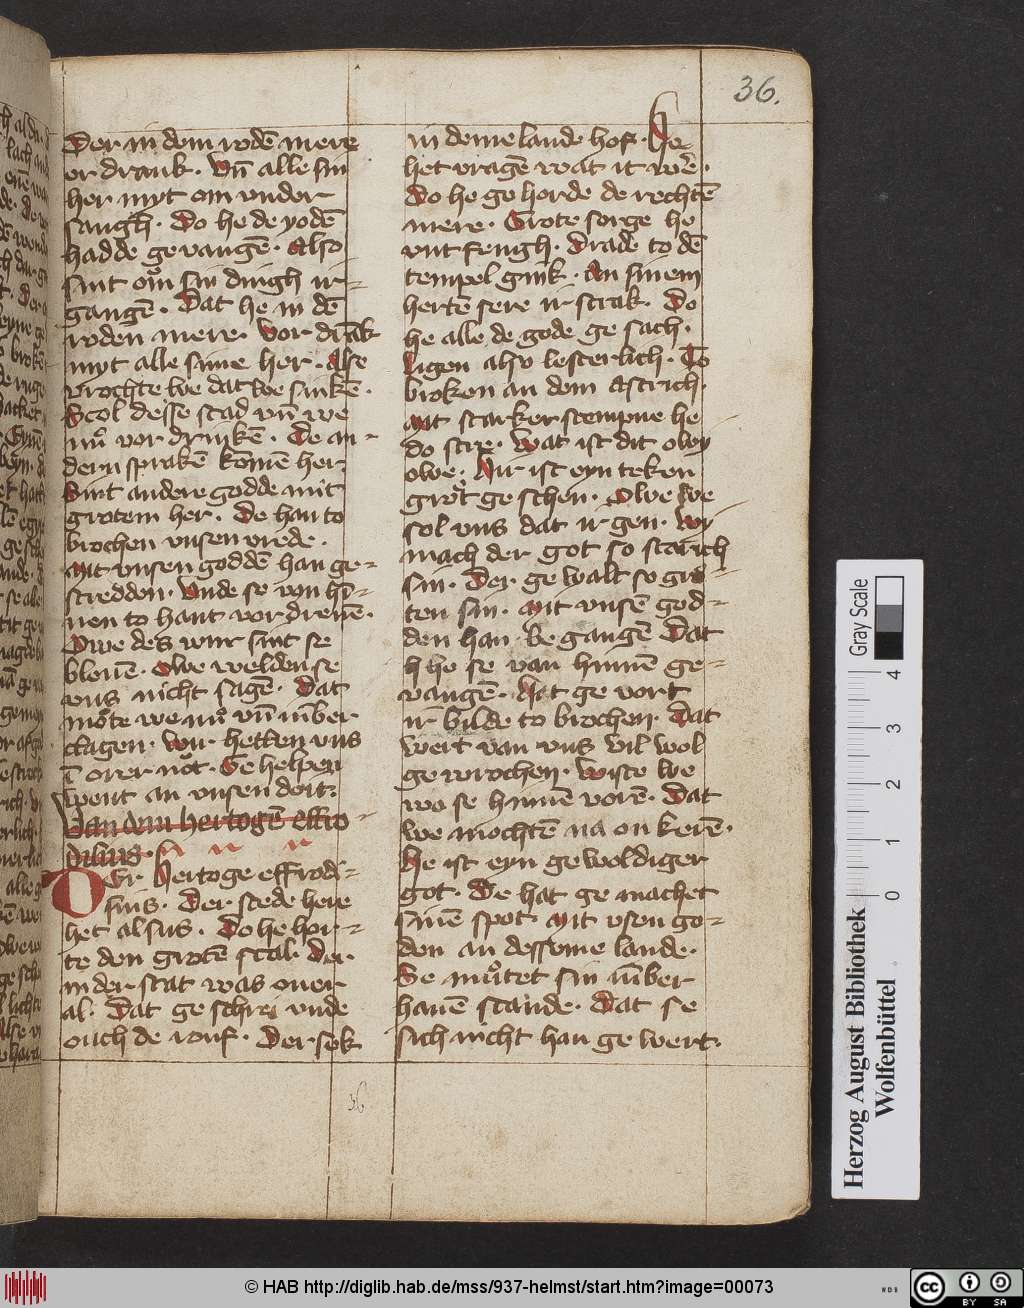 36.
Der in dem rodē mere
er drank. Vn̄ alle sin
her myt om vnder
sangh. Do he de yodē
hadde gevangē. Also
sint om sin dingh ir-
gangē. Dat he in dē
roden mere. Vor drāk
myt alle sime her. Alse
vrochte we dat we sinkē.
Scol desse stad vn̄ we
nu vor drinkē. De an-
dern sprakē komē her
Sint andere godde mit
grotem her. De han to
brochen vnsen vrede.
Mit vnsen goddē han ge-
stredden. Vnde se von hī-
nen to hant vor drenē.
Owe des wur sint se
bleuē. Owe welden se
vns nicht sagē. Dat
mote we nu vn̄ īmber
clagen. Wur hetten vns
ī orer not. Se helpen
went an vnsen doit.
Van dem hertogē effro
disius.
Der Hertoge effrodi-
sius. Der stede here
het alsus. Do he hor-
te den grotē scal. Der
in der stat was ouer
al. Dat ge schrei vnde
ouch de rouf. Der sek
in deme lande hof. He
het vragē wat it wer.
Do he ge horde de rechtē
mere. Grote sorge he
vnt fengh. Drade to dē
tempel gink. An sinem
hertē sere ir scrak. Do
he alle de gode ge sach.
Ligen also lesterlich. To
broken an dem Astrich.
Mit starker stempne he
do scire. Wat ist dit owy
owe. Hir ist eyn teken
grot ge schen. Owe we
sol vns dat ir gen. Wy
mach der got so starich
sin. Der ge walt so gro-
ten sin. Mit vnsē god-
den han be gangē Dat
h he se van hinnē ge-
vangē. Hat ge vort
ir bilde to brochen. Dat
wert van vns vil wol
ge wrochen. Wiste we
wo se hinnē vorē. Dat
we mochtē na on kerē.
He ist eyn ge woldiger
got. De hat ge machet
sinē spot. Mit vsen go-
den an desseme lande.
Se mutet sin īmber
hauē scande. Dat se
sich nicht han ge wert.
36
Herzog August Bibliothek
Wolfenbüttel
Gray Scale
0 1 2 3 4
© HAB http://diglib.hab.de/mss/937-helmst/start.htm?image=00073
WDB
cc BY SA